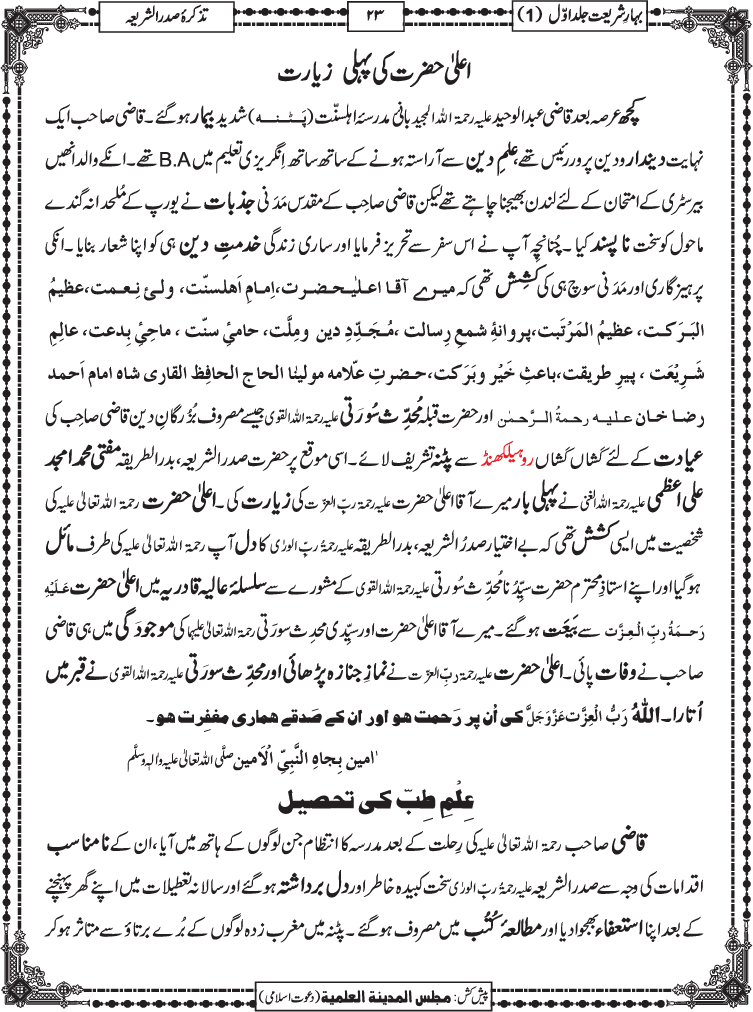 بہارِ شریعت جلد اوّل (1)
۲۳
تذکرۂ صدر الشریعہ
اعلیٰ حضرت کی پہلی زیارت
کچھ عرصہ بعد قاضی عبدالوحید علیہ رحمۃ اللہ المجید بانی مدرسۂ اہلسنّت (پَٹْنہ) شدید بیمار ہوگئے۔ قاضی صاحب ایک
نہایت دیندار و دین پرور رئیس تھے، علمِ دین سے آراستہ ہونے کے ساتھ ساتھ اِنگریزی تعلیم میں B.A تھے۔ انکے والد انھیں
بیرسٹری کے امتحان کے لئے لندن بھیجنا چاہتے تھے لیکن قاضی صاحِب کے مقدس مَدَنی جذبات نے یورپ کے مُلحدانہ گندے
ماحول کو سخت نا پسند کیا۔ چُنانچِہ آپ نے اس سفر سے تحریز فرمایا اور ساری زندگی خدمتِ دین ہی کو اپنا شعار بنایا۔ انکی
پرہیزگاری اور مَدَنی سوچ ہی کی کَشِش تھی کہ میرے آقا اعلیٰحضرت، اِمامِ اَھلسنّت، ولیٔ نِعمت، عظیمُ
البَرَکت، عظیمُ المَرْتَبت، پروانۂ شمعِ رسالت، مُجَدِّدِ دین ومِلَّت، حامیٔ سنّت، ماحِیٔ بِدعت، عالِمِ
شَرِیْعَت، پیرِ طریقت، باعثِ خَیْر وبَرَکت، حضرتِ علّامہ مولینٰا الحاج الحافِظ القاری شاہ امام اَحمد
رضا خان علیہ رحمۃُ الرَّحمٰن اور حضرت قبلہ مُحَدِّث سُورَتی علیہ رحمۃ اللہ القوی جیسے مصروف بُزُرگانِ دین قاضی صاحِب کی
عِیادت کے لئے کَشاں کَشاں روہیلکھنڈ سے پٹنہ تشریف لائے۔ اسی موقع پر حضرت صدر الشریعہ، بدر الطریقہ مفتی محمد امجد
علی اعظمی علیہ رحمۃ اللہ الغنی نے پہلی بار میرے آقا اعلیٰ حضرت علیہ رحمۃ ربِّ العزّت کی زیارت کی۔ اعلیٰ حضرت رحمۃ اللہ تعالیٰ علیہ کی
شخصیت میں ایسی کشش تھی کہ بے اختیار صدرُ الشریعہ، بدر الطریقہ علیہ رحمۃُ ربِّ الورٰی کا دل آپ رحمۃ اللہ تعالیٰ علیہ کی طرف مائل
ہوگیا اور اپنے استاذِ محترم حضرت سیِّدُنا مُحَدِّث سُورتی علیہ رحمۃ اللہ القوی کے مشورے سے سلسلۂ عالیہ قادریہ میں اعلیٰ حضرت عَلَیْہِ
رَحمَۃُ ربِّ الْعِزَّت سے بَیْعَت ہوگئے۔ میرے آقا اعلیٰ حضرت اور سیِّدی محدث سورَتی رحمۃ اللہ تعالیٰ علیہما کی موجودگی میں ہی قاضی
صاحب نے وفات پائی۔ اعلیٰ حضرت علیہ رحمۃ ربِّ العزّت نے نمازِ جنازہ پڑھائی اور محدِّث سورَتی علیہ رحمۃ اللہ القوی نے قبر میں
اُتارا۔ اللہُ رَبُّ الْعِزَّت عَزَّوَجَلَّ کی اُن پر رَحمت ہو اور ان کے صَدقے ہماری مغفِرت ہو۔
اٰمین بِجاہِ النَّبِیِّ الْاَمین صلَّی اللہ تعالیٰ علیہ واٰلہٖ وسلَّم
عِلْمِ طِبّ کی تحصیل
قاضی صاحب رحمۃ اللہ تعالیٰ علیہ کی رِحلت کے بعد مدرسہ کا انتظام جن لوگوں کے ہاتھ میں آیا، ان کے نامناسب
اقدامات کی وجہ سے صدر الشریعہ علیہ رحمۃُ ربِّ الورٰی سخت کبیدہ خاطر اور دل برداشتہ ہوگئے اور سالانہ تعطیلات میں اپنے گھر پہنچنے
کے بعد اپنا استعفاء بھجوا دیا اور مطالعۂ کُتُب میں مصروف ہوگئے۔ پٹنہ میں مغرب زدہ لوگوں کے بُرے برتاؤ سے متاثر ہوکر
پیش کش: مجلس المدینۃ العلمیۃ (دعوتِ اسلامی)